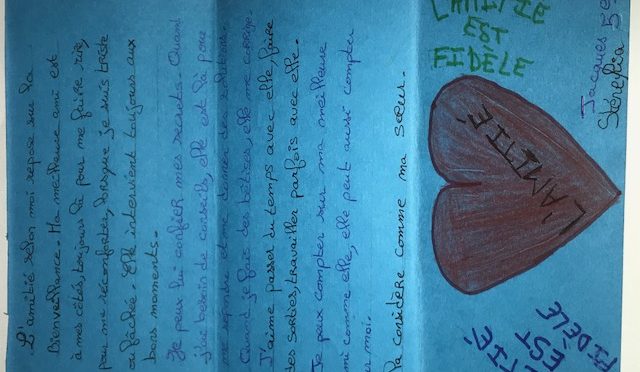 L'amitié selon moi repose sur la
Bienveillance. Ma meilleure ami est
à mes côtés, toujours là pour me faire rire,
pour me réconforter, lorsque je suis triste
ou fachée. Elle intervient toujours aux
bons moments.
Je peux lui confier mes secrets. Quand
j'ai besoin de conseils, elle est là pour
me et me donner des solutions.
Quand je fais des bêtises, elle me corrige.
J'aime passer du temps avec elle, faire
des sorties, travailler parfois avec elle.
Je peux compter sur ma meilleure
mi comme elle, elle peut aussi compter
ur moi.
la considère comme ma sœur.
L'AMITIÉ
EST
FIDÈLE
L'AMITIÉ
TIÉ
EST
FIDÈLE
Jacques 5e